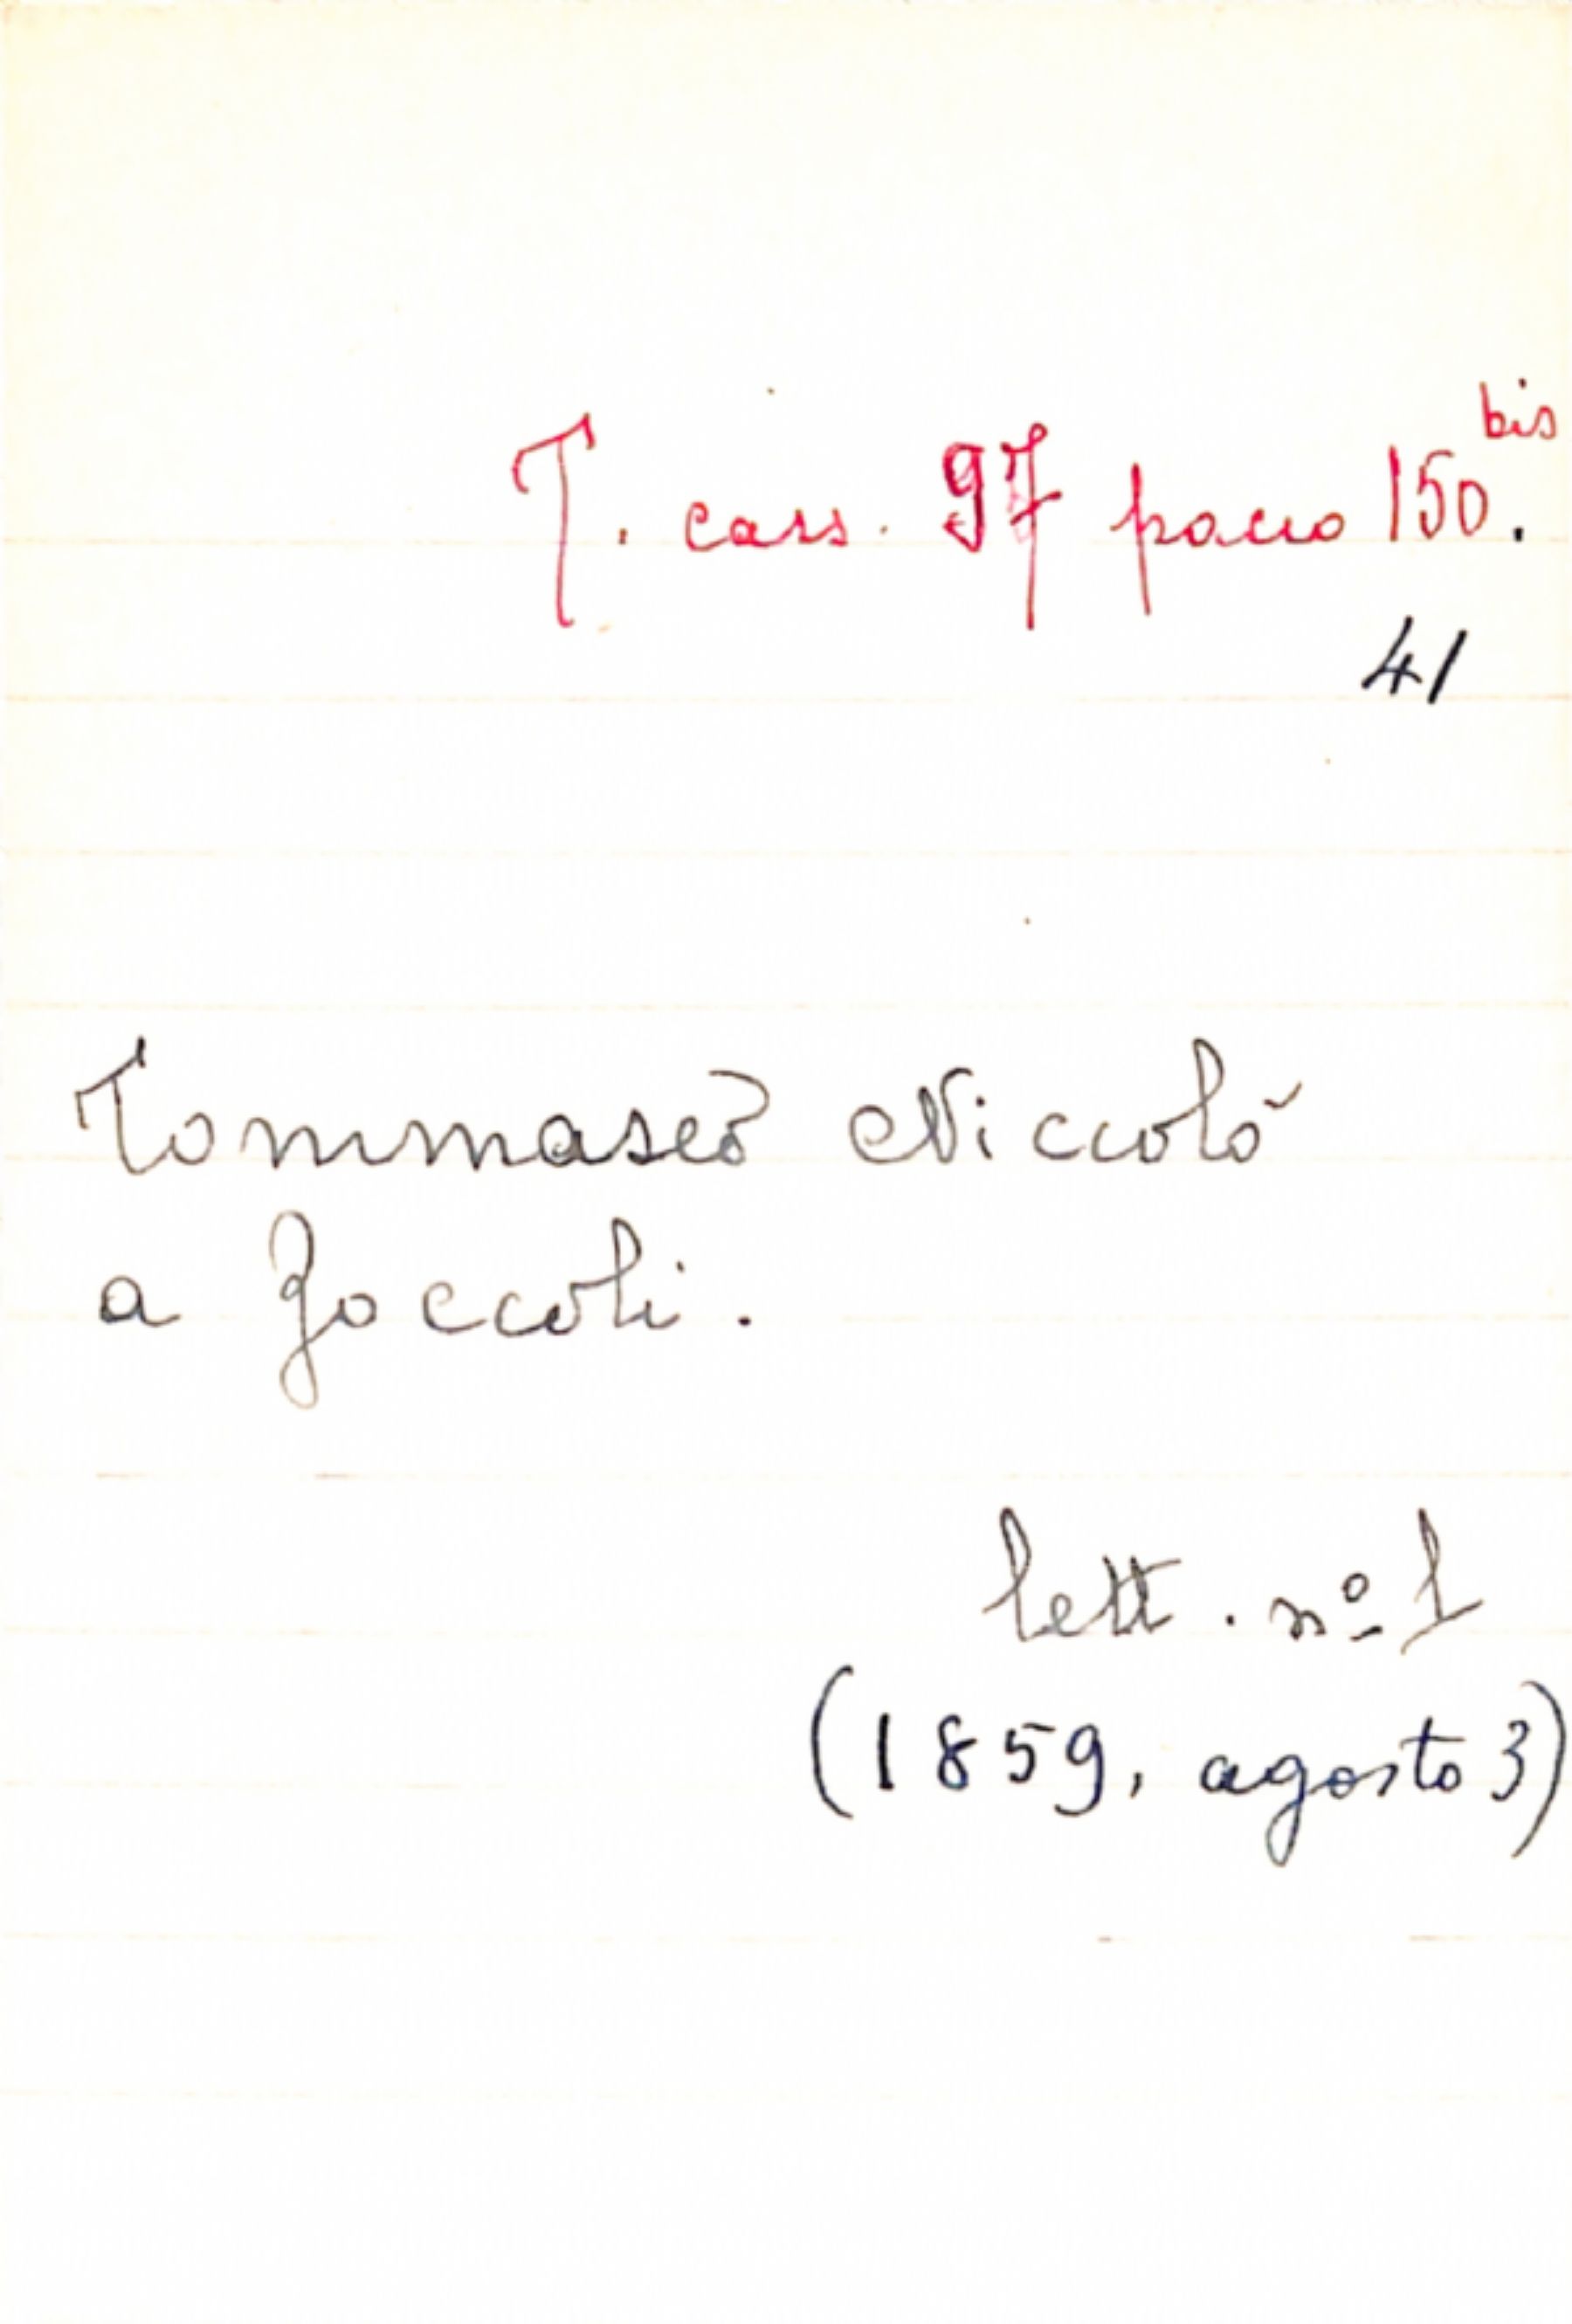 T. cass. 97 pacco 150 bis.
41
Tommaseo Niccolò
a Zoccoli.
lett. nº 1
(1859, agosto 3)